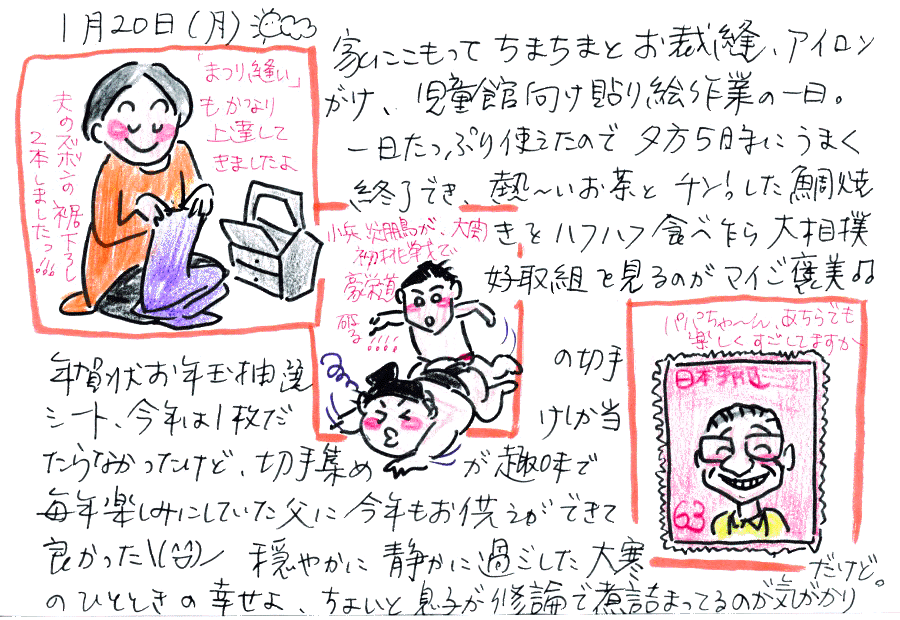 1月20日(月)
「まつり縫い」
もかなり
上達して
きましたよ
夫のズボンの裾下ろし
2本しました!!!
家にこもって ちまちまと お裁縫、アイロン
がけ、児童館向け貼り絵作業の一日。
一日たっぷり使えたので 夕方5時まにうまく
終了でき、熱〜いお茶と チン!。した鯛焼
きとハフハフ食べ乍ら 大相撲
好取組を見るのがマイご褒美♫
小兵炎鵬が、大関
初挑戦で
豪栄道
破る!!!!
パパちゃ〜ん、あちらでも
楽しくすごしてますか
日本郵便
63
年賀状お年玉抽選の切手
シート、今年は1枚だけしか当
たらなかったけど、切手集めが趣味で
毎年楽しみにしていた父に今年もお供えができて
良かった\(^^)/ 穏やかに静かに過ごした大寒
のひとときの幸せよ、ちょいと息子が修論で煮詰まってるのが気がかり
だけど。